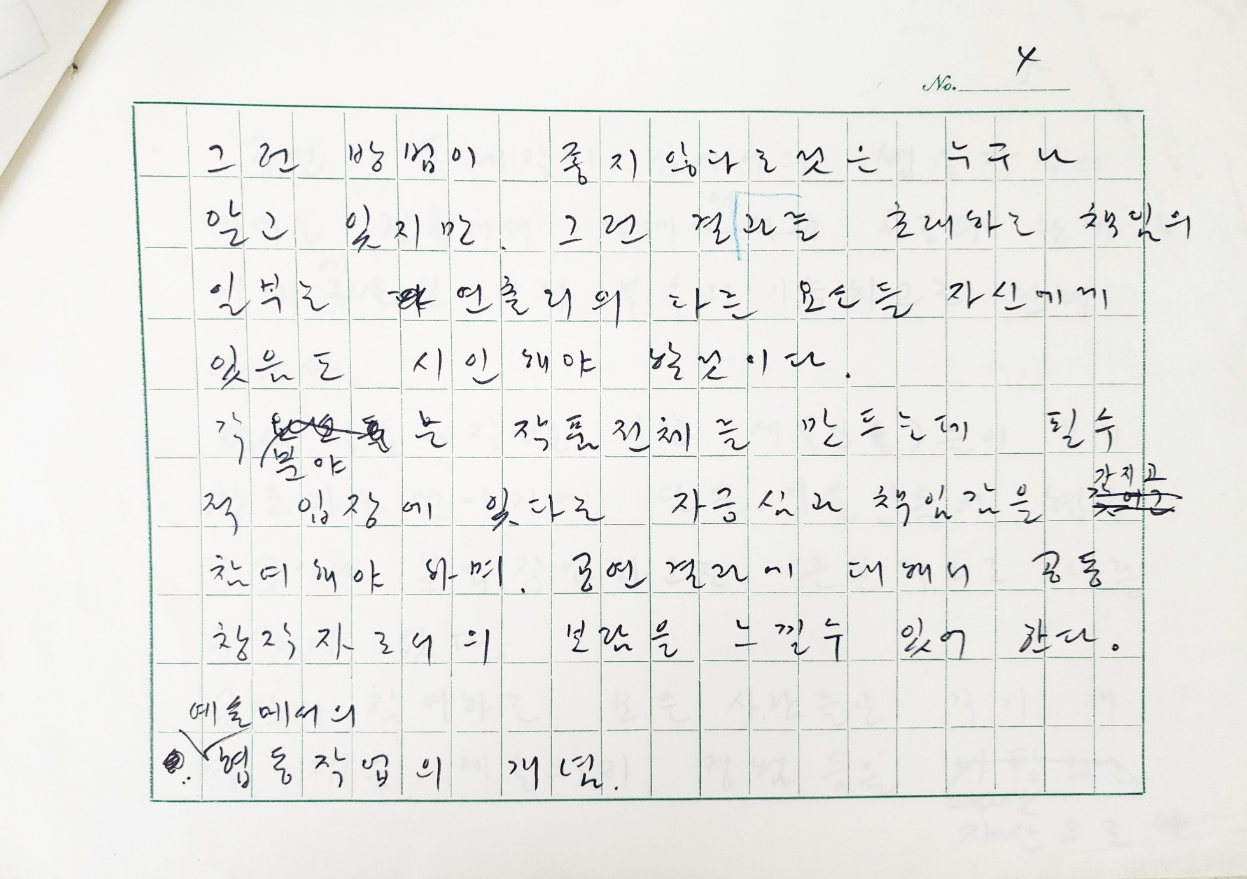 No. 4
그런 방법이 좋지 않다는것은 누구나
알고 있지만. 그런 결과를 초래하는 책임의
일부는 연출외의 다른 요소들 자신에게
있음도 시인해야 할것이다.
각 분야는 작품전체를 만드는데 필수
적 입장에 있다는 자긍심과 책임감을 가지고
참여해야 하며. 공연결과에 대해서 공동
창작자로서의 보람을 느낄수 있어야 한다.
예술에서의
협동작업의 개념.